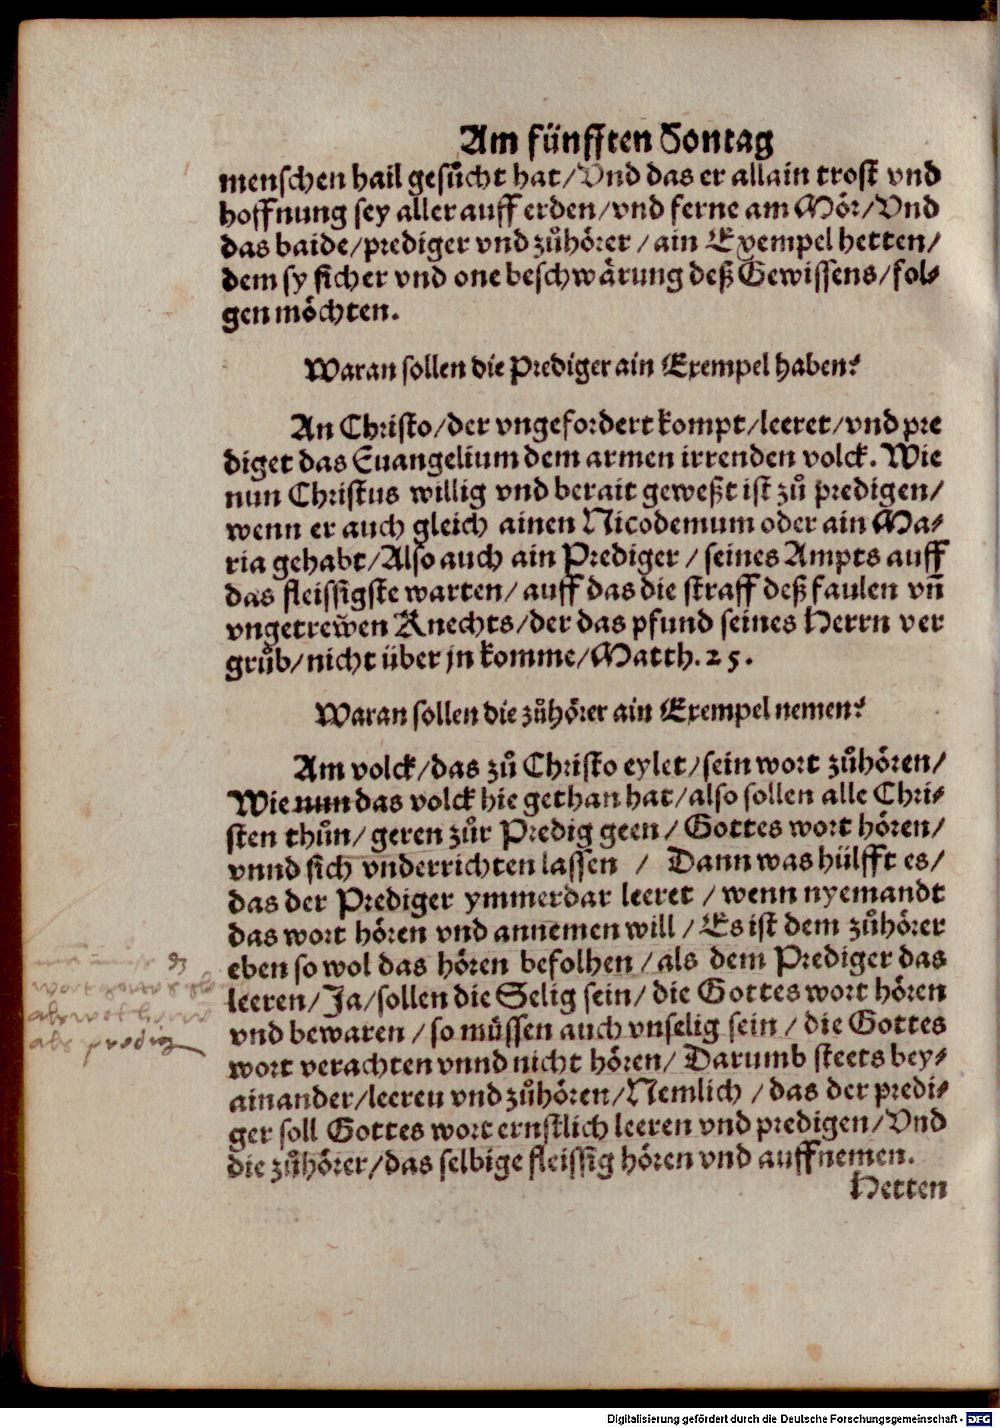 Am fünfften Sontag
menschen hail gesůcht hat/Vnd das er allain trost vnd
hoffnung sey aller auff erden/vnd ferne am Mör/Vnd
das baide/prediger vnd zůhörer/ain Exempel hetten/
dem sy sicher vnd one beschwärung deß Gewissens/fol⸗
gen möchten.
Waran sollen die Prediger ain Exempel haben?
An Christo/der vngefordert kompt/leeret/vnd pre
diget das Euangelium dem armen irrenden volck. Wie
nun Christus willig vnd berait geweßt ist zů predigen/
wenn er auch gleich ainen Nicodemum oder ain Ma⸗
ria gehabt/Also auch ain Prediger/seines Ampts auff
das fleissigste warten/auff das die straff deß faulen vñ
vngetrewen Knechts/der das pfund seines Herrn ver
grůb/nicht über jn komme/Matth.25.
Waran sollen die zůhörer ain Exempel nemen?
Am volck/das zů Christo eylet/sein wort zůhören/
Wie nun das volck hie gethan hat/also sollen alle Chri⸗
sten thůn/geren zůr Predig geen/Gottes wort hören/
vnnd sich vnderrichten lassen / Dann was hülfft es/
das der Prediger ymmerdar leeret/wenn nyemandt
das wort hören vnd annemen will/Es ist dem zůhörer
eben so wol das hören befolhen/als dem Prediger das
leeren/Ja/sollen die Selig sein/die Gottes wort hören
vnd bewaren/so müssen auch vnselig sein/die Gottes
wort verachten vnnd nicht hören/Darumb steets bey⸗
ainander/leeren vnd zůhören/Nemlich/das der predi⸗
ger soll Gottes wort ernstlich leeren vnd predigen/Vnd
die zůhörer/das selbige fleissig hören vnd auffnemen.
Hetten
als predig
Digitalisierung gefördert durch die Deutsche Forschungsgemeinschaft - DFG